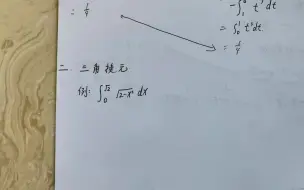 = 1/4
-∫₁⁰ t³ dt
= ∫₀¹ t³ dt
= 1/4
二 三角换元
例: ∫₀^√2 √(2-x²) dx